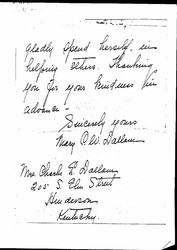 gladly spend herself, in
helping others. Thanking
you for your kindness in
advance -
Sincerely yours
Mary C. W. Dallam
Mrs Charles E. Dallam
205 S. Elm Street
Henderson
Kentucky.